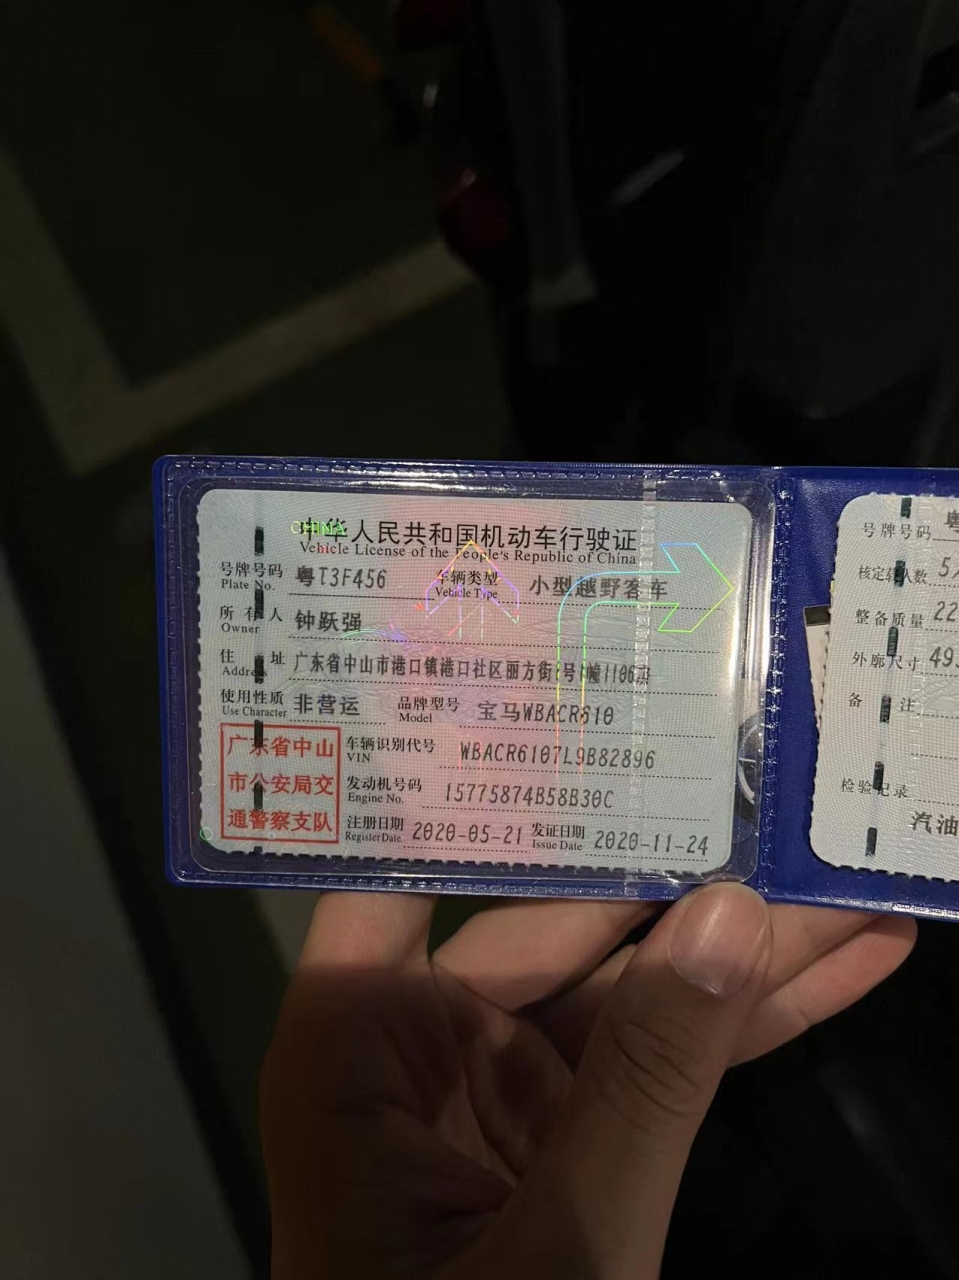 中华人民共和国机动车行驶证
Vehicle License of the People's Republic of China
号牌号码 Plate No. 粤T3F456 车辆类型 Vehicle Type 小型越野客车
所有人 Owner 钟跃强
住址 Address 广东省中山市港口镇港口社区丽方街 号 幢1106房
使用性质 Use Character 非营运 品牌型号 Model 宝马WBACR610
广东省中山
市公安局交
通警察支队
车辆识别代号 VIN WBACR6107L9B82896
发动机号码 Engine No. 15775874B58B30C
注册日期 Register Date 2020-05-21 发证日期 Issue Date 2020-11-24
号牌号码 粤
核定载人数 5人
整备质量 22
外廓尺寸 49
备注
检验记录
汽油